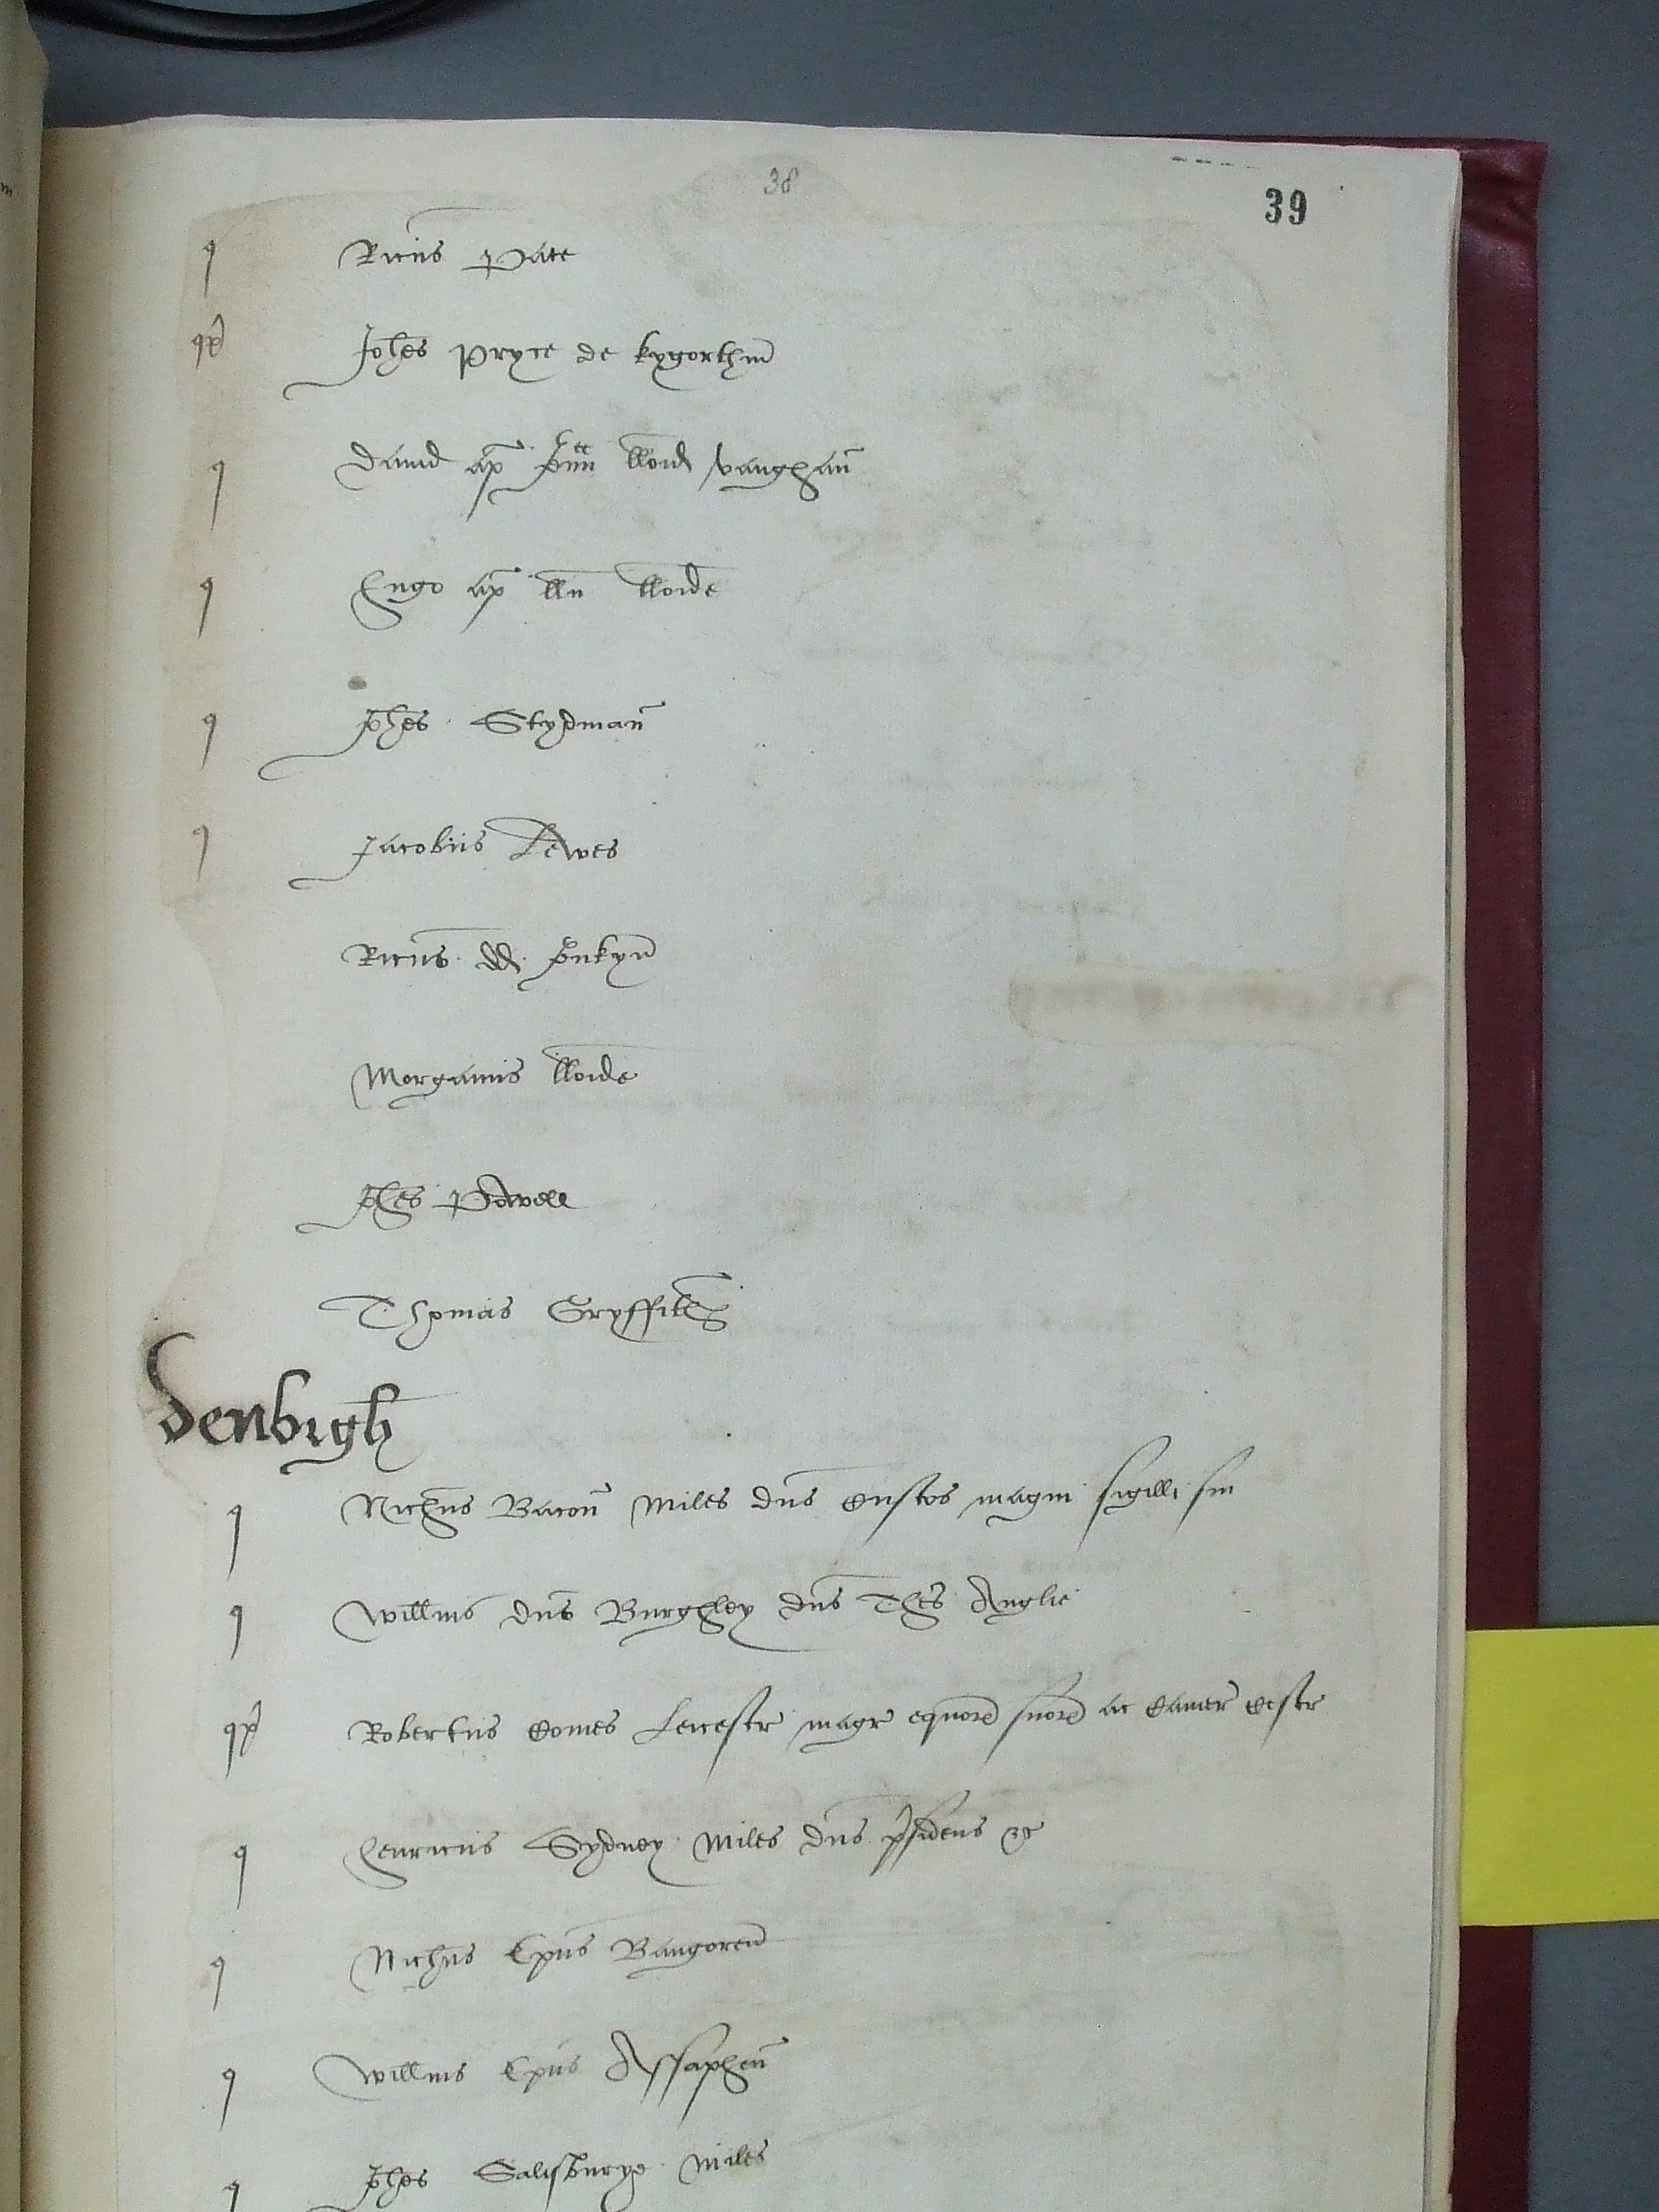 38
39
q Ricus Pate
qr Johes Pryce de kygorthin
q David ap Jenn lloid vaughan
q Hugo ap lln lloide
q Johes Stydman
q Jacobus Lewes
Ricus dd Jenkyn
Morganus lloide
Johes Powell
Thomas Gryffith
Denbigh
q Nichus Bacon Miles dns Custos magni sigilli sui
q Willmus dns Burghley dns Thes Anglie
qr Robertus Comes Leicestr magr equor suor ac Camer Cestr
q Henricus Sydney Miles dns psidens &c
q Nichus Epus Bangoren
q Willmus Epus Assaphen
q Johes Salisburye Miles